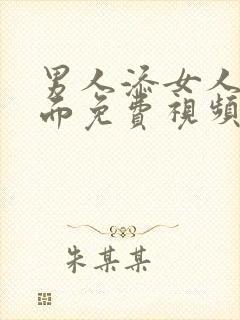 男人添女人
而免費視頻
朱某某